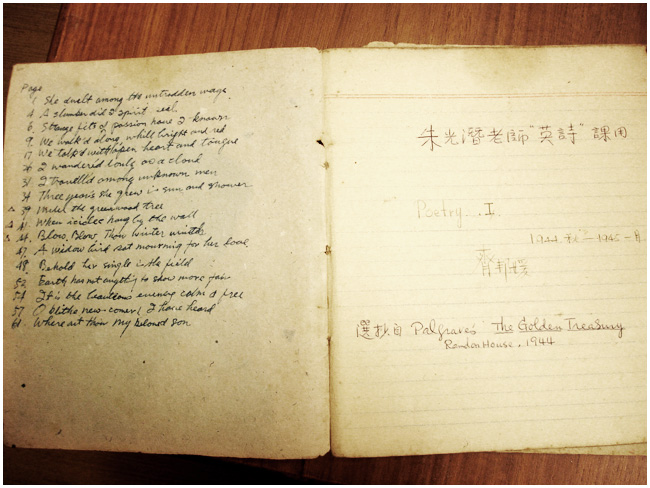 Page
1 She dwelt among the untrodden ways
4 A slumber did I spirit seal
6. Strange fits of passion have I known
9. We walk'd along, while bright and red
We talk'd with open heart and tongue
I wander'd lonely as a cloud
31 I travell'd among unknown men
34 Three years she grew in sun and shower
39 Under the greenwood tree
41. When icicles hang by the wall
44. Blow, Blow, Thou winter wind
47. A widow bird sat mourning for her love
48. Behold her single in the field
52 Earth has not anything to show more fair
54 It is the beauteous evening calm & free
57. O blithe new-comer! I have heard
61. Where art thou my beloved Son
朱光潛老師"英詩"課用
Poetry I.
1944 秋 — 1945 一月
齊邦媛
選抄自 Palgrave's The Golden Treasury
Random House. 1944